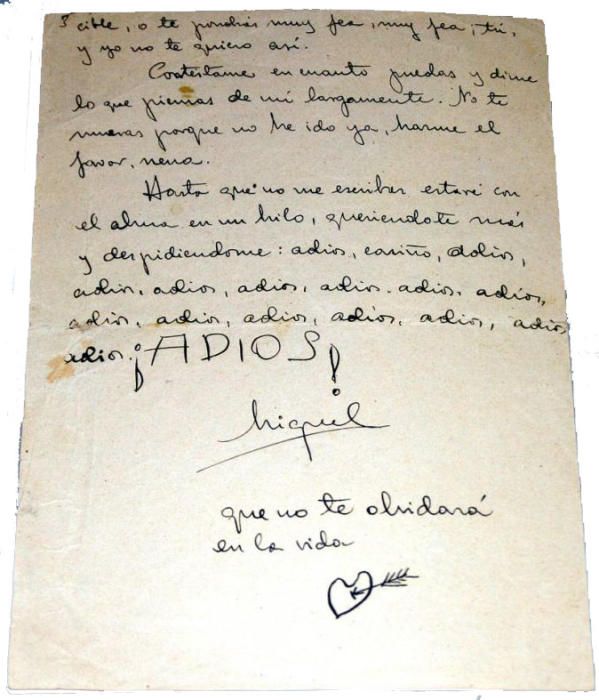 cible, o te pondrás muy fea, muy fea, tú,
y yo no te quiero así.
Contestame en cuanto puedas y dime
lo que piensas de mí largamente. No te
mueras porque no he ido ya, harme el
favor, nena.
Hasta que no me escribas estaré con
el alma en un hilo, queriendote más
y despidiendome: adios, cariño, adios,
adios, adios, adios, adios, adios, adios,
adios, adios, adios, adios, adios, adios
adios. ¡ADIOS!
Miguel
que no te olvidará
en la vida